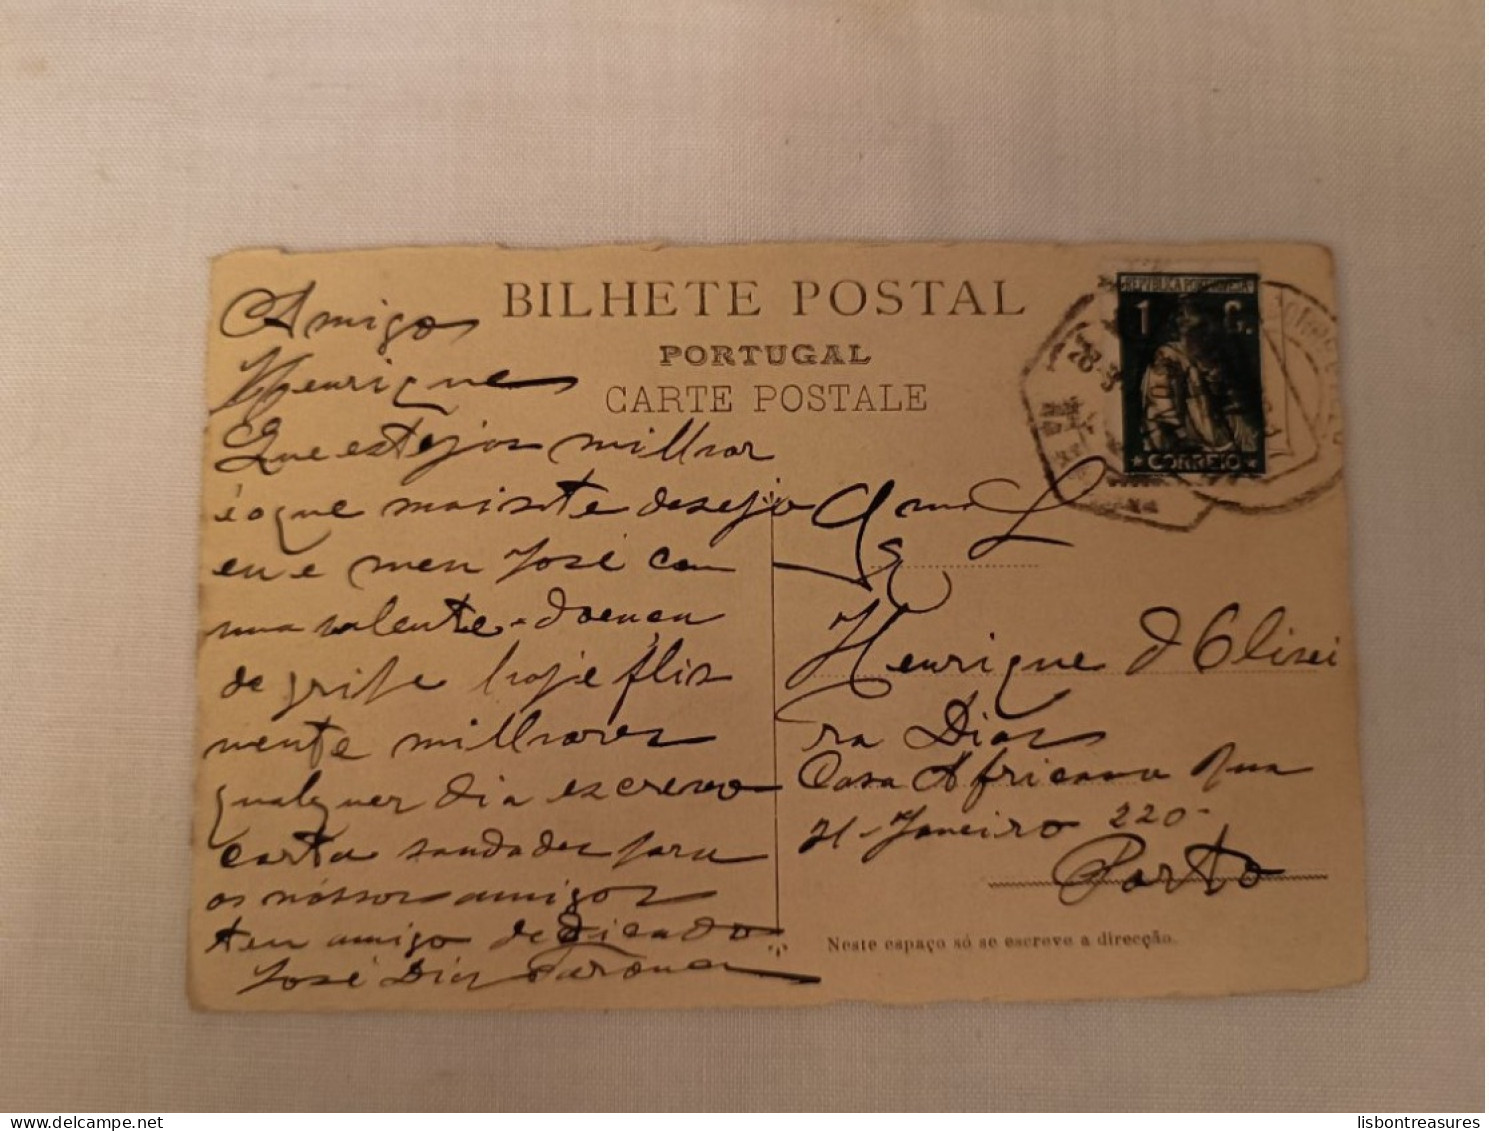 BILHETE POSTAL
PORTUGAL
CARTE POSTALE
Amigo
Henrique
Que estejas milhor
é o que mais te desejo
eu e meu José com
uma valente doença
de gripe hoje fliz
mente milhores
qualquer dia escrevo
carta saudades para
os nossos amigos
teu amigo dedicado
José Dias
REPVBLICA PORTVGVESA
1 C.
CORREIO
Henrique d Olivei
ra Dias
Casa Africana Rua
31 Janeiro 220-
Porto
Neste espaço só se escreve a direcção.
lisbontreasures